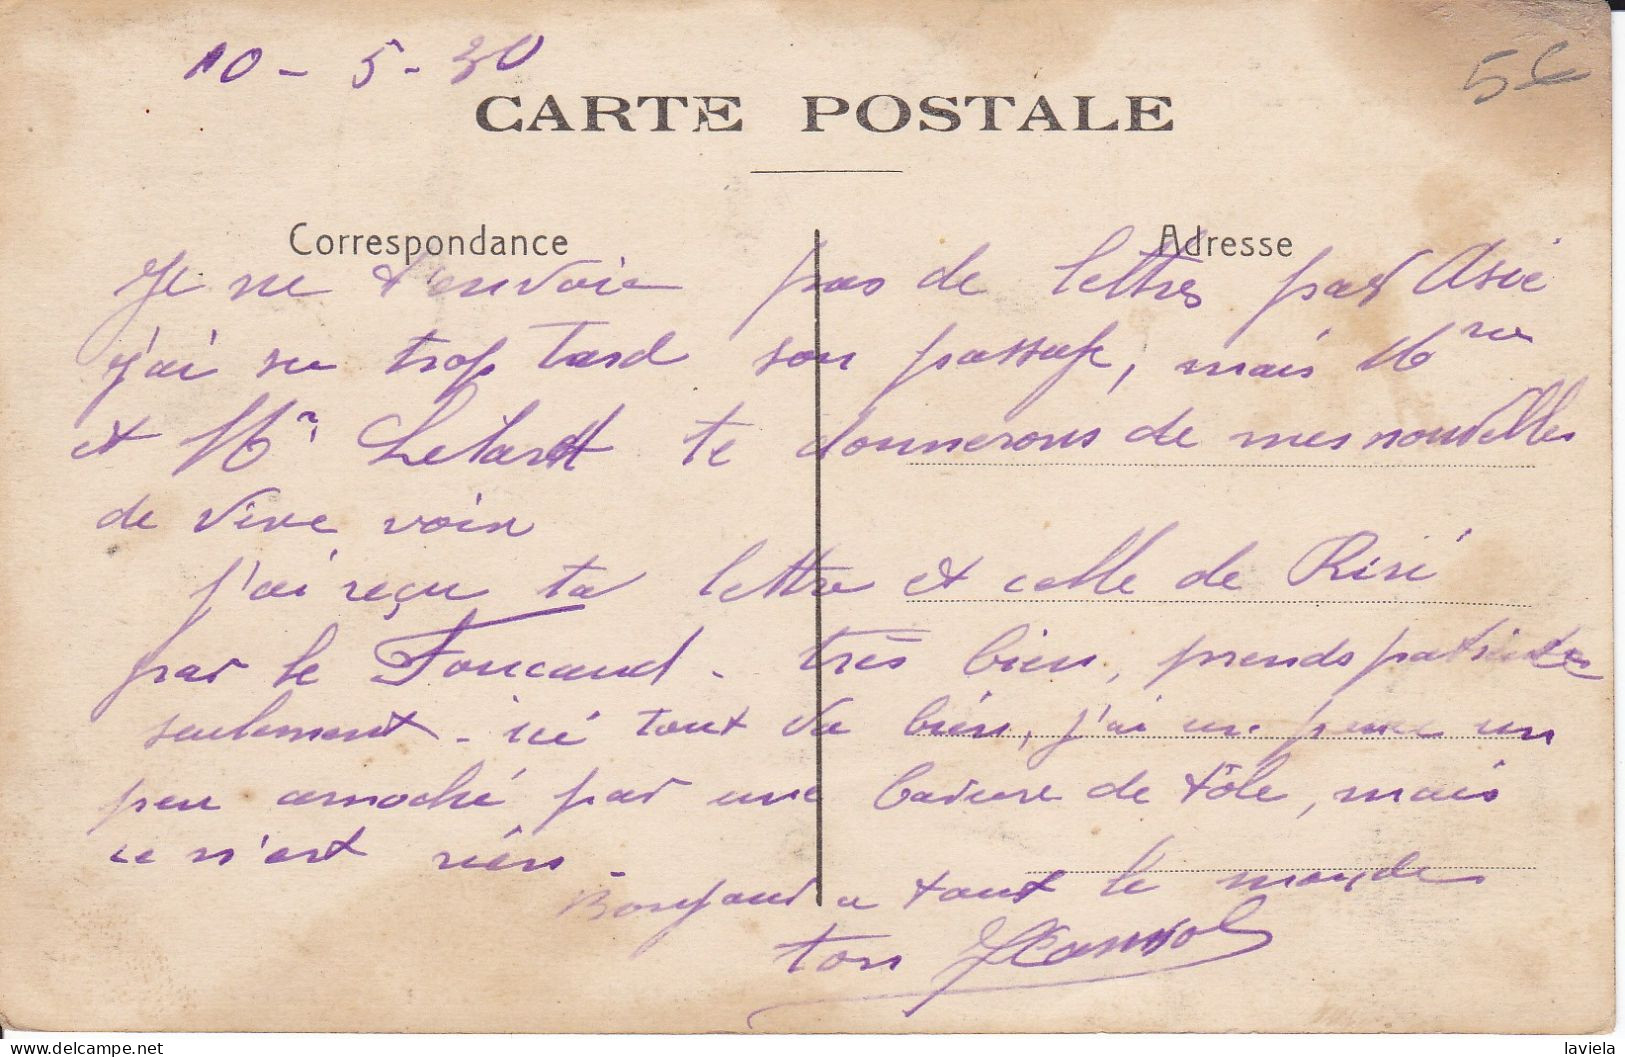 10 - 5 - 30
5€
CARTE POSTALE
Correspondance
Adresse
Je ne t'envoie pas de lettres par Asie
j'ai su trop tard son passage, mais Mme
et Mr Letardt te donnerons de mes nouvelles
de vive voix
j'ai reçu ta lettre et celle de Riri
par le Foucaud - très bien, prends
seulement - ici tout va bien, j'ai un un
peu amoché par une barure de tôle, mais
ce n'est rien -
Bonjour a tout le monde
ton
laviela
delcampe.net